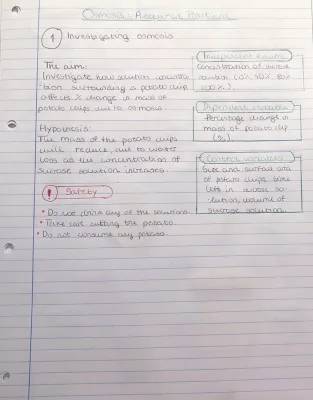 Osmosis: Required Practical
1 Investigating osmosis
The aim:
Investigate how solution concentra-
tion surrounding a potato chip
affects % change in mass of
potato chips due to osmosis.
Hypothesis:
The mass of the potato chips
will reduce, due to water
loss as the concentration of
sucrose solution increases.
! Safety
• Do not drink any of the solutions.
• Take care cutting the potato.
• Do not consume any potato.
Independent variable
Concentration of sucrose
solution (0%,
100%.)
Dependent variable
Percentage change in
mass of potato chip
(%)
Control variables
Size and surface area
of potato chips, time
left in sucrose so-
lution, volume of
sucrose solution.